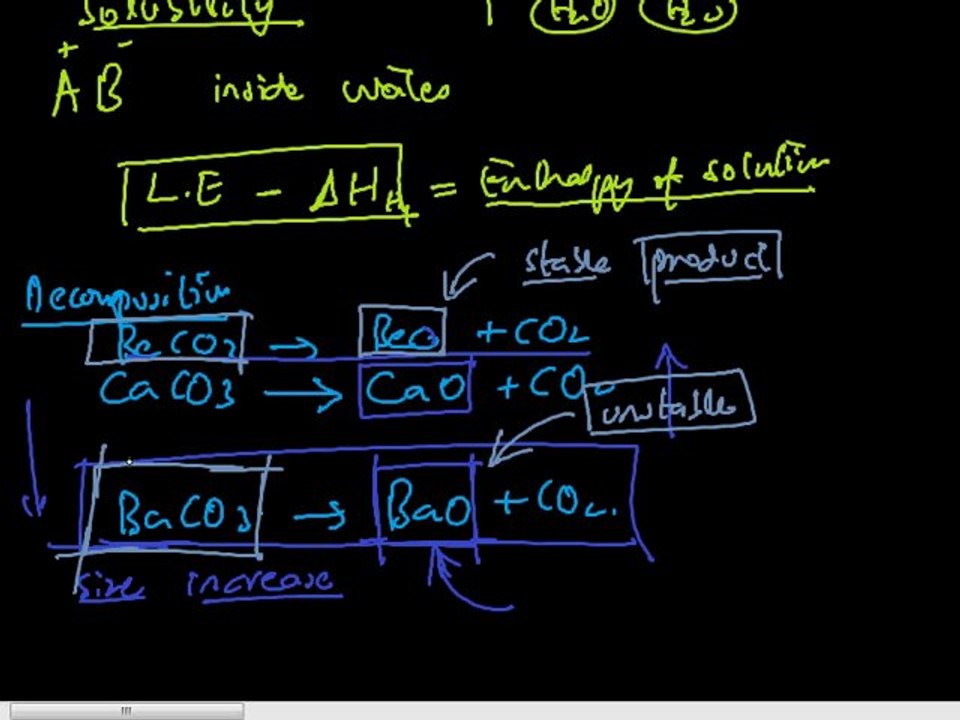 Solubility
H2O H2O
+ -
A B inside water
L.E - ΔHH = Enthalpy of solution
stable product
Decomposition
BeCO3 → BeO + CO2
CaCO3 → CaO + CO2
unstable
BaCO3 → BaO + CO2.
size increase